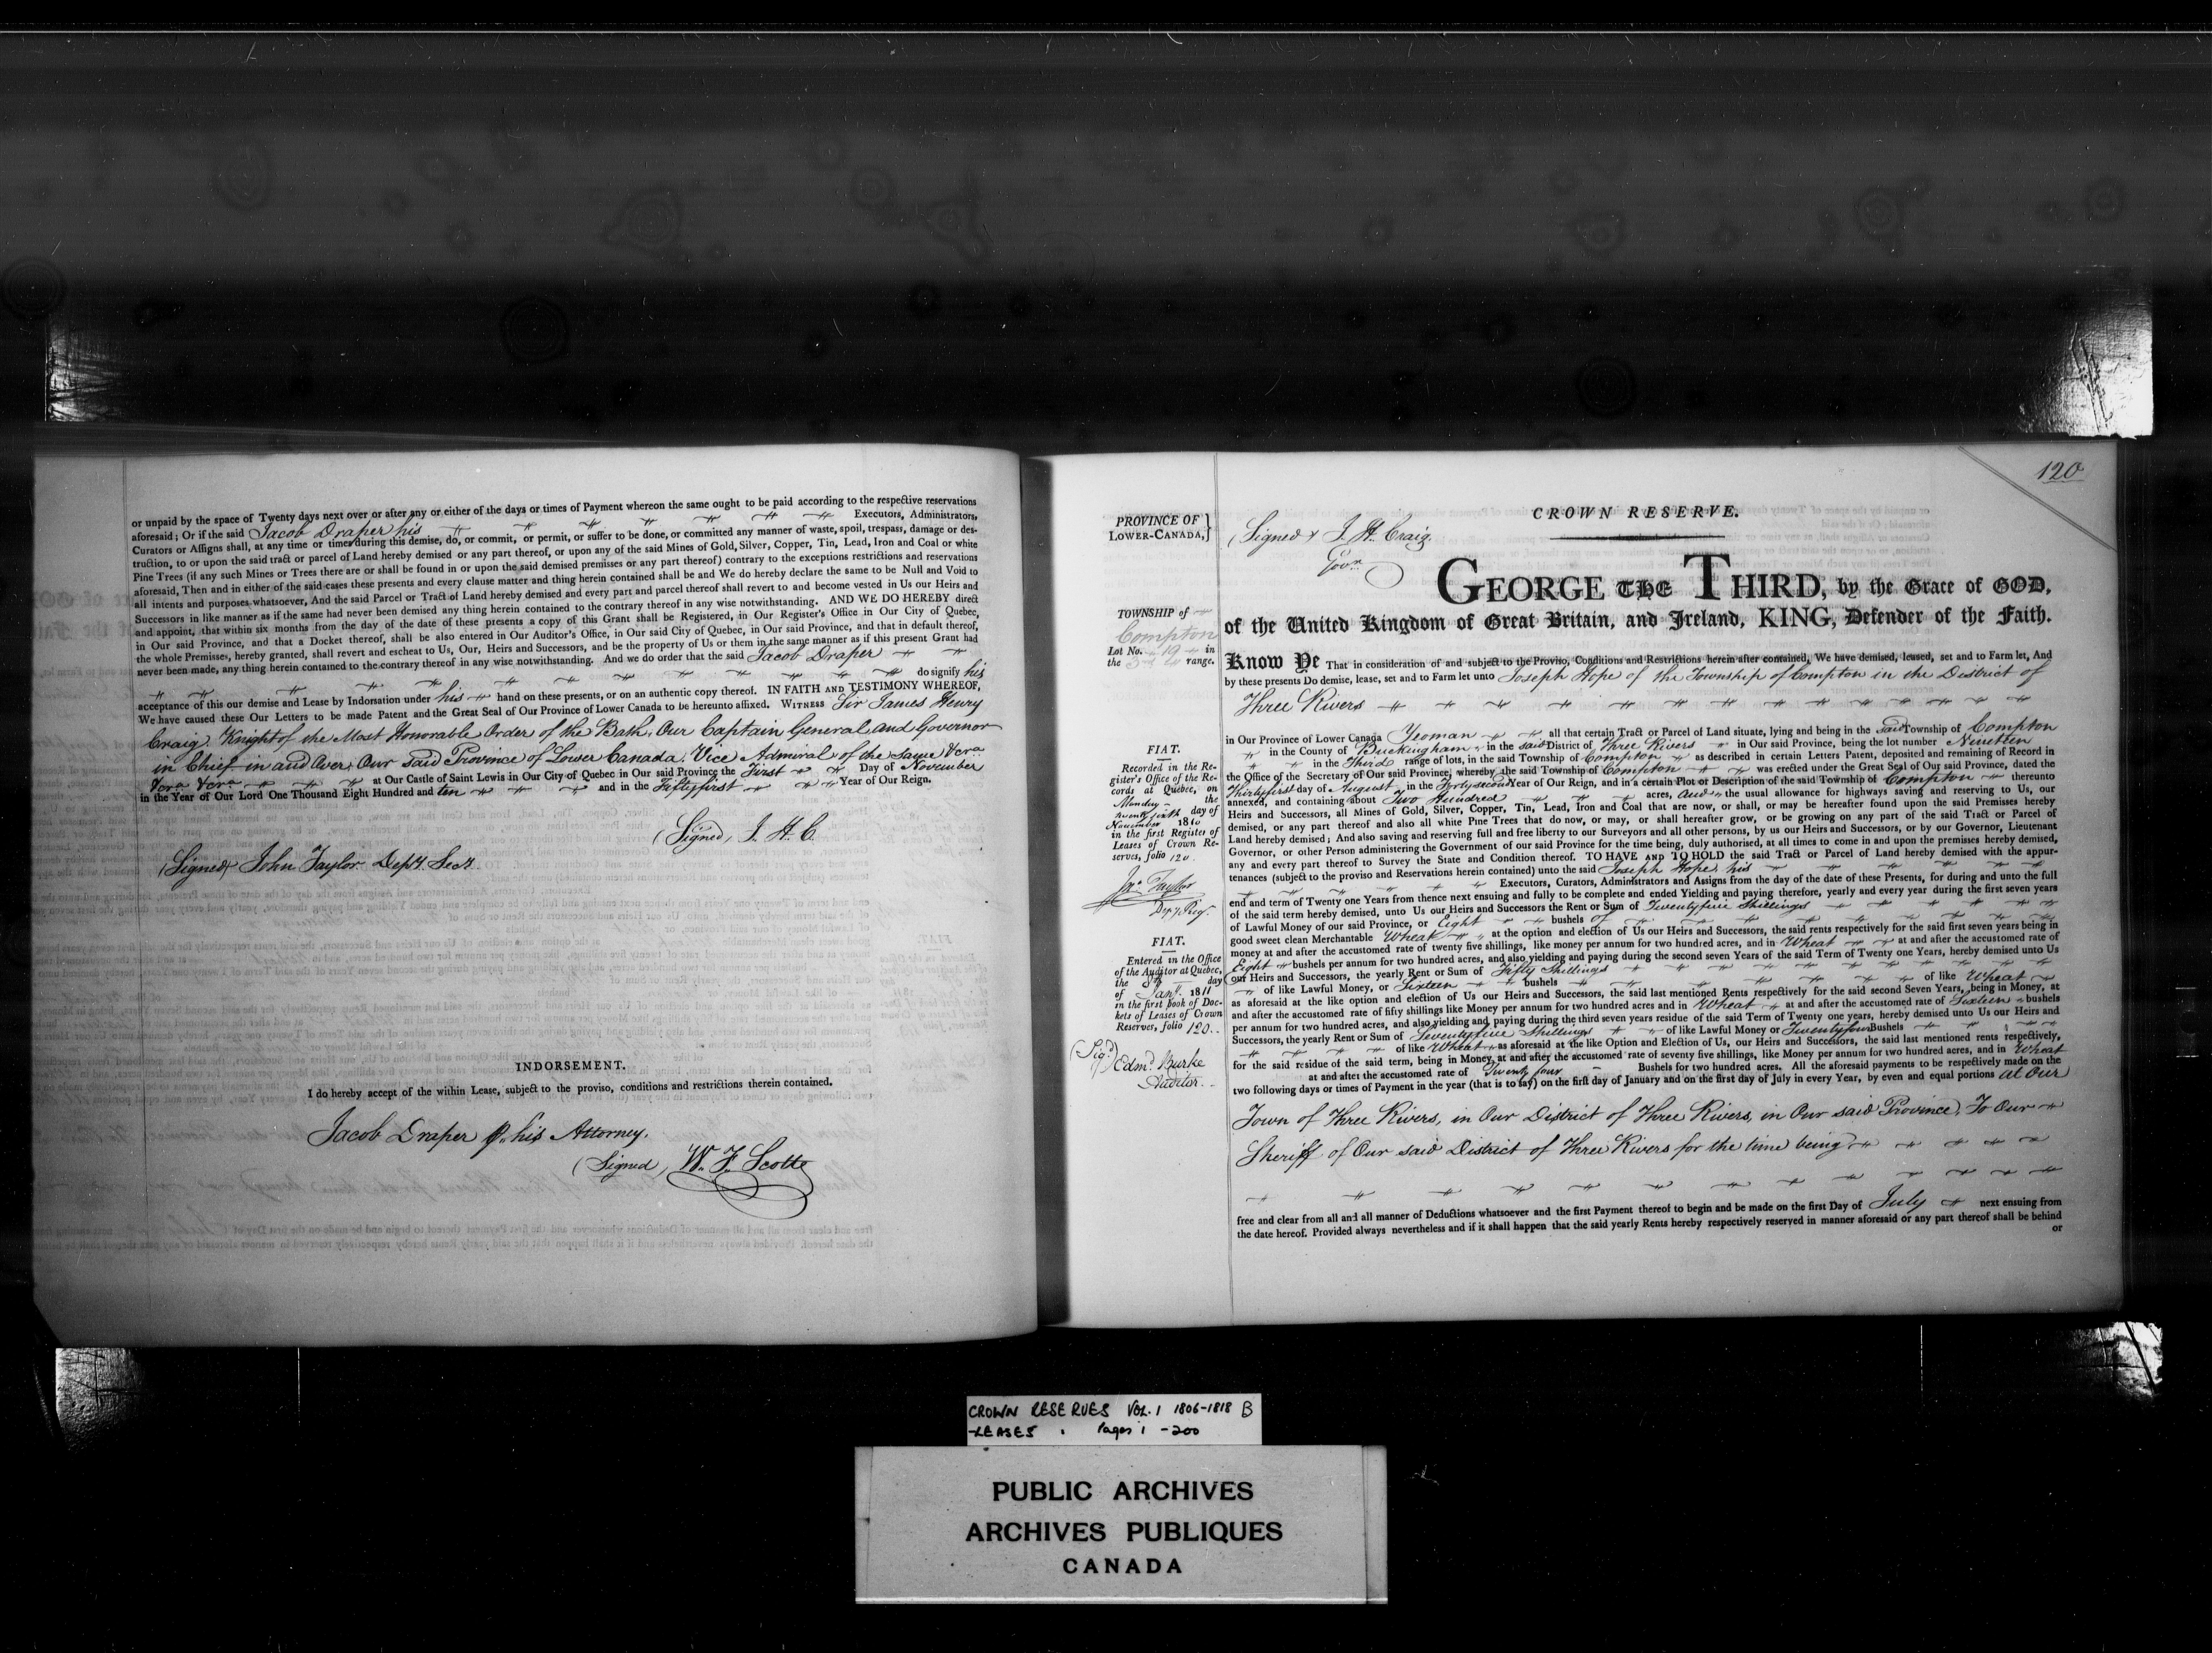 or unpaid by the space of Twenty days next over or after any or either of the days or times of Payment whereon the same ought to be paid according to the respective reservations
aforesaid; Or if the said Jacob Draper his Executors, Administrators,
Curators or Assigns shall, at any time or times during this demise, do, or commit, or permit, or suffer to be done, or committed any manner of waste, spoil, trespass, damage or des-
truction, to or upon the said tract or parcel of Land hereby demised or any part thereof, or upon any of the said Mines of Gold, Silver, Copper, Tin, Lead, Iron and Coal or white
Pine Trees (if any such Mines or Trees there are or shall be found in or upon the said demised premises or any part thereof) contrary to the exceptions restrictions and reservations
aforesaid, Then and in either of the said cases these presents and every clause matter and thing herein contained shall be and We do hereby declare the same to be Null and Void to
all intents and purposes whatsoever, And the said Parcel or Tract of Land hereby demised and every part and parcel thereof shall revert to and become vested in Us our Heirs and
Successors in like manner as if the same had never been demised any thing herein contained to the contrary thereof in any wise notwithstanding. AND WE DO HEREBY direct
and appoint, that within six months from the day of the date of these presents a copy of this Grant shall be Registered, in Our Register's Office in Our City of Quebec,
in Our said Province, and that a Docket thereof, shall be also entered in Our Auditor's Office, in Our said City of Quebec, in Our said Province, and that in default thereof,
the whole Premises, hereby granted, shall revert and escheat to Us, Our, Heirs and Successors, and be the property of Us or them in the same manner as if this present Grant had
never been made, any thing herein contained to the contrary thereof in any wise notwithstanding. And we do order that the said Jacob Draper
do signify his
acceptance of this our demise and Lease by Indorsation under his hand on these presents, or on an authentic copy thereof. IN FAITH AND TESTIMONY WHEREOF,
We have caused these Our Letters to be made Patent and the Great Seal of Our Province of Lower Canada to be hereunto affixed. WITNESS Sir James Henry
Craig Knight of the Most Honorable Order of the Bath, Our Captain General and Governor
in Chief in and Over Our said Province of Lower Canada, Vice Admiral of the same &cra
&cra &cra at Our Castle of Saint Lewis in Our City of Quebec in Our said Province the First Day of November
in the Year of Our Lord One Thousand Eight Hundred and ten and in the Fiftyfirst Year of Our Reign.
(Signed) J. H. C.
(Signed) John Taylor Depy. Secy.
INDORSEMENT.
I do hereby accept of the within Lease, subject to the proviso, conditions and restrictions therein contained.
Jacob Draper p. his Attorney.
(Signed) W. F. Scott
120
CROWN RESERVE.
PROVINCE OF
LOWER-CANADA,
(Signed) J. H. Craig,
Govr.
GEORGE THE THIRD, by the Grace of GOD,
of the United Kingdom of Great Britain, and Ireland, KING, Defender of the Faith.
TOWNSHIP of
Compton
Lot No. 19 in
the 3rd range.
Know Ye That in consideration of and subject to the Proviso, Conditions and Restrictions herein after contained, We have demised, leased, set and to Farm let, And
by these presents Do demise, lease, set and to Farm let unto Joseph Hope of the Township of Compton in the District of
Three Rivers
in Our Province of Lower Canada Yeoman all that certain Tract or Parcel of Land situate, lying and being in the said Township of Compton
in the County of Buckingham in the said District of Three Rivers in Our said Province, being the lot number Nineteen
in the Third range of lots, in the said Township of Compton as described in certain Letters Patent, deposited and remaining of Record in
the Office of the Secretary of Our said Province, whereby the said Township of Compton was erected under the Great Seal of Our said Province, dated the
Thirtyfirst day of August in the Fortysecond Year of Our Reign, and in a certain Plot or Description of the said Township of Compton thereunto
annexed, and containing about Two Hundred acres, and the usual allowance for highways saving and reserving to Us, our
Heirs and Successors, all Mines of Gold, Silver, Copper, Tin, Lead, Iron and Coal that are now, or shall, or may be hereafter found upon the said Premises hereby
demised, or any part thereof and also all white Pine Trees that do now, or may, or shall hereafter grow, or be growing on any part of the said Tract or Parcel of
Land hereby demised; And also saving and reserving full and free liberty to our Surveyors and all other persons, by us our Heirs and Successors, or by our Governor, Lieutenant
Governor, or other Person administering the Government of our said Province for the time being, duly authorised, at all times to come in and upon the premises hereby demised,
any and every part thereof to Survey the State and Condition thereof. TO HAVE AND TO HOLD the said Tract or Parcel of Land hereby demised with the appur-
tenances (subject to the proviso and Reservations herein contained) unto the said Joseph Hope, his
Executors, Curators, Administrators and Assigns from the day of the date of these Presents, for during and unto the full
end and term of Twenty one Years from thence next ensuing and fully to be complete and ended Yielding and paying therefore, yearly and every year during the first seven years
of the said term hereby demised, unto Us our Heirs and Successors the Rent or Sum of Twentyfive Shillings
of Lawful Money of our said Province, or Eight bushels of
good sweet clean Merchantable Wheat at the option and election of Us our Heirs and Successors, the said rents respectively for the said first seven years being in
money at and after the accustomed rate of twenty five shillings, like money per annum for two hundred acres, and in Wheat at and after the accustomed rate of
Eight bushels per annum for two hundred acres, and also yielding and paying during the second seven Years of the said Term of Twenty one Years, hereby demised unto Us
our Heirs and Successors, the yearly Rent or Sum of Fifty Shillings
of like Lawful Money, or Sixteen bushels of like Wheat
as aforesaid at the like option and election of Us our Heirs and Successors, the said last mentioned Rents respectively for the said second Seven Years, being in Money, at
and after the accustomed rate of fifty shillings like Money per annum for two hundred acres and in Wheat at and after the accustomed rate of Sixteen bushels
per annum for two hundred acres, and also yielding and paying during the third seven years residue of the said Term of Twenty one years, hereby demised unto Us our Heirs and
Successors, the yearly Rent or Sum of Seventyfive Shillings of like Lawful Money or Twentyfour Bushels
of like Wheat as aforesaid at the like Option and Election of Us, our Heirs and Successors, the said last mentioned rents respectively,
for the said residue of the said term, being in Money, at and after the accustomed rate of seventy five shillings, like Money per annum for two hundred acres, and in Wheat
at and after the accustomed rate of Twenty four Bushels for two hundred acres. All the aforesaid payments to be respectively made on the
two following days or times of Payment in the year (that is to say) on the first day of January and on the first day of July in every Year, by even and equal portions at Our
Town of Three Rivers, in Our District of Three Rivers, in Our said Province, To Our
Sheriff of Our said District of Three Rivers for the time being
free and clear from all and all manner of Deductions whatsoever and the first Payment thereof to begin and be made on the first Day of July next ensuing from
the date hereof. Provided always nevertheless and if it shall happen that the said yearly Rents hereby respectively reserved in manner aforesaid or any part thereof shall be behind
or
FIAT.
Recorded in the Re-
gister's Office of the Re-
cords at Quebec, on
Monday the
twenty sixth day of
November 1810
in the first Register of
Leases of Crown Re-
serves, folio 120.
Jno. Taylor
Depy. Reg.
FIAT.
Entered in the Office
of the Auditor at Quebec,
the 8th day
of Jany. 1811
in the first book of Doc-
kets of Leases of Crown
Reserves, folio 120.
(Sigd.) Edmd. Burke
Auditor.
CROWN RESERVES VOL. 1 1806-1818 B
-LEASES Pages 1 -200
PUBLIC ARCHIVES
ARCHIVES PUBLIQUES
CANADA